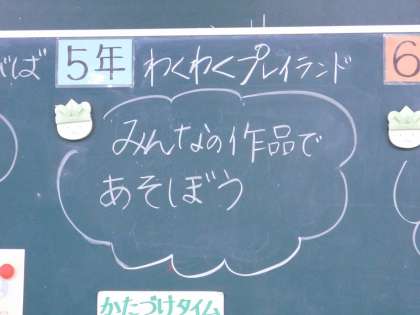 ば
5年
わくわくプレイランド
6
みんなの作品で
あそぼう
かたづけタイム